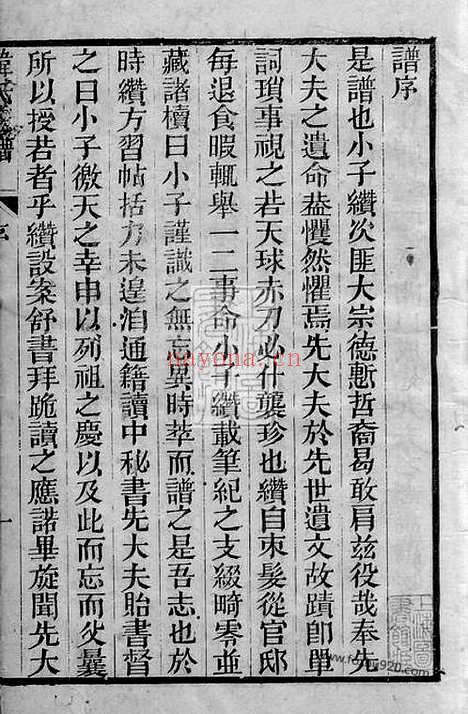 譜序
是譜也小子纘次匪大宗德慙哲裔曷敢肩玆役哉奉先
大夫之遺命葢懼然懼焉先大夫於先世遺文故蹟卽單
詞瑣事視之若天球赤刀必什襲珍也纘自束髮從官邸
每退食暇輒舉一二事命小子纘載筆紀之支綴畸零並
藏諸櫝曰小子謹識之無忘異時萃而譜之是吾志也於
時纘方習帖括力未遑洎通籍讀中秘書先大夫貽書督
之曰小子徼天之幸申以列祖之慶以及此而忘而父曩
所以授若者乎纘設案舒書拜跪讀之應諾畢旋聞先大
氏 譜
序
一
nayona.cn